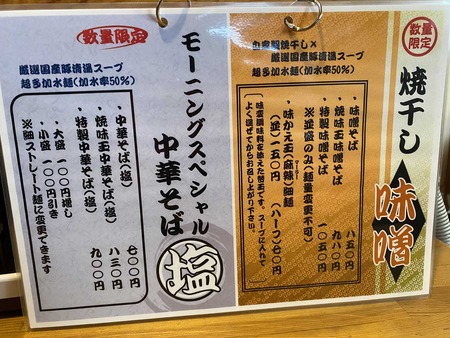 数量限定
焼干し
味噌
自家製焼干し×
厳選国産豚清湯スープ
超多加水麺(加水率50%)
・味噌そば 八五〇円
・焼味玉味噌そば 九八〇円
・特製味噌そば 一〇五〇円
※並盛のみ(麺量変更不可)
・味かえ玉(麻辣)細麺
マーラー
(並)一五〇円 (ハーフ)七〇円
味変調味料を添えた替玉です。スープに入れて
よく混ぜてからお召し上がり下さい。
モーニングスペシャル
中華そば
塩
数量限定
厳選国産豚清湯スープ
超多加水麺(加水率50%)
・中華そば(塩) 七〇〇円
・焼味玉中華そば(塩) 八三〇円
・特製中華そば(塩) 九〇〇円
・大盛 一〇〇円増し
・小盛 一〇〇円引き
※細ストレート麺に変更できます